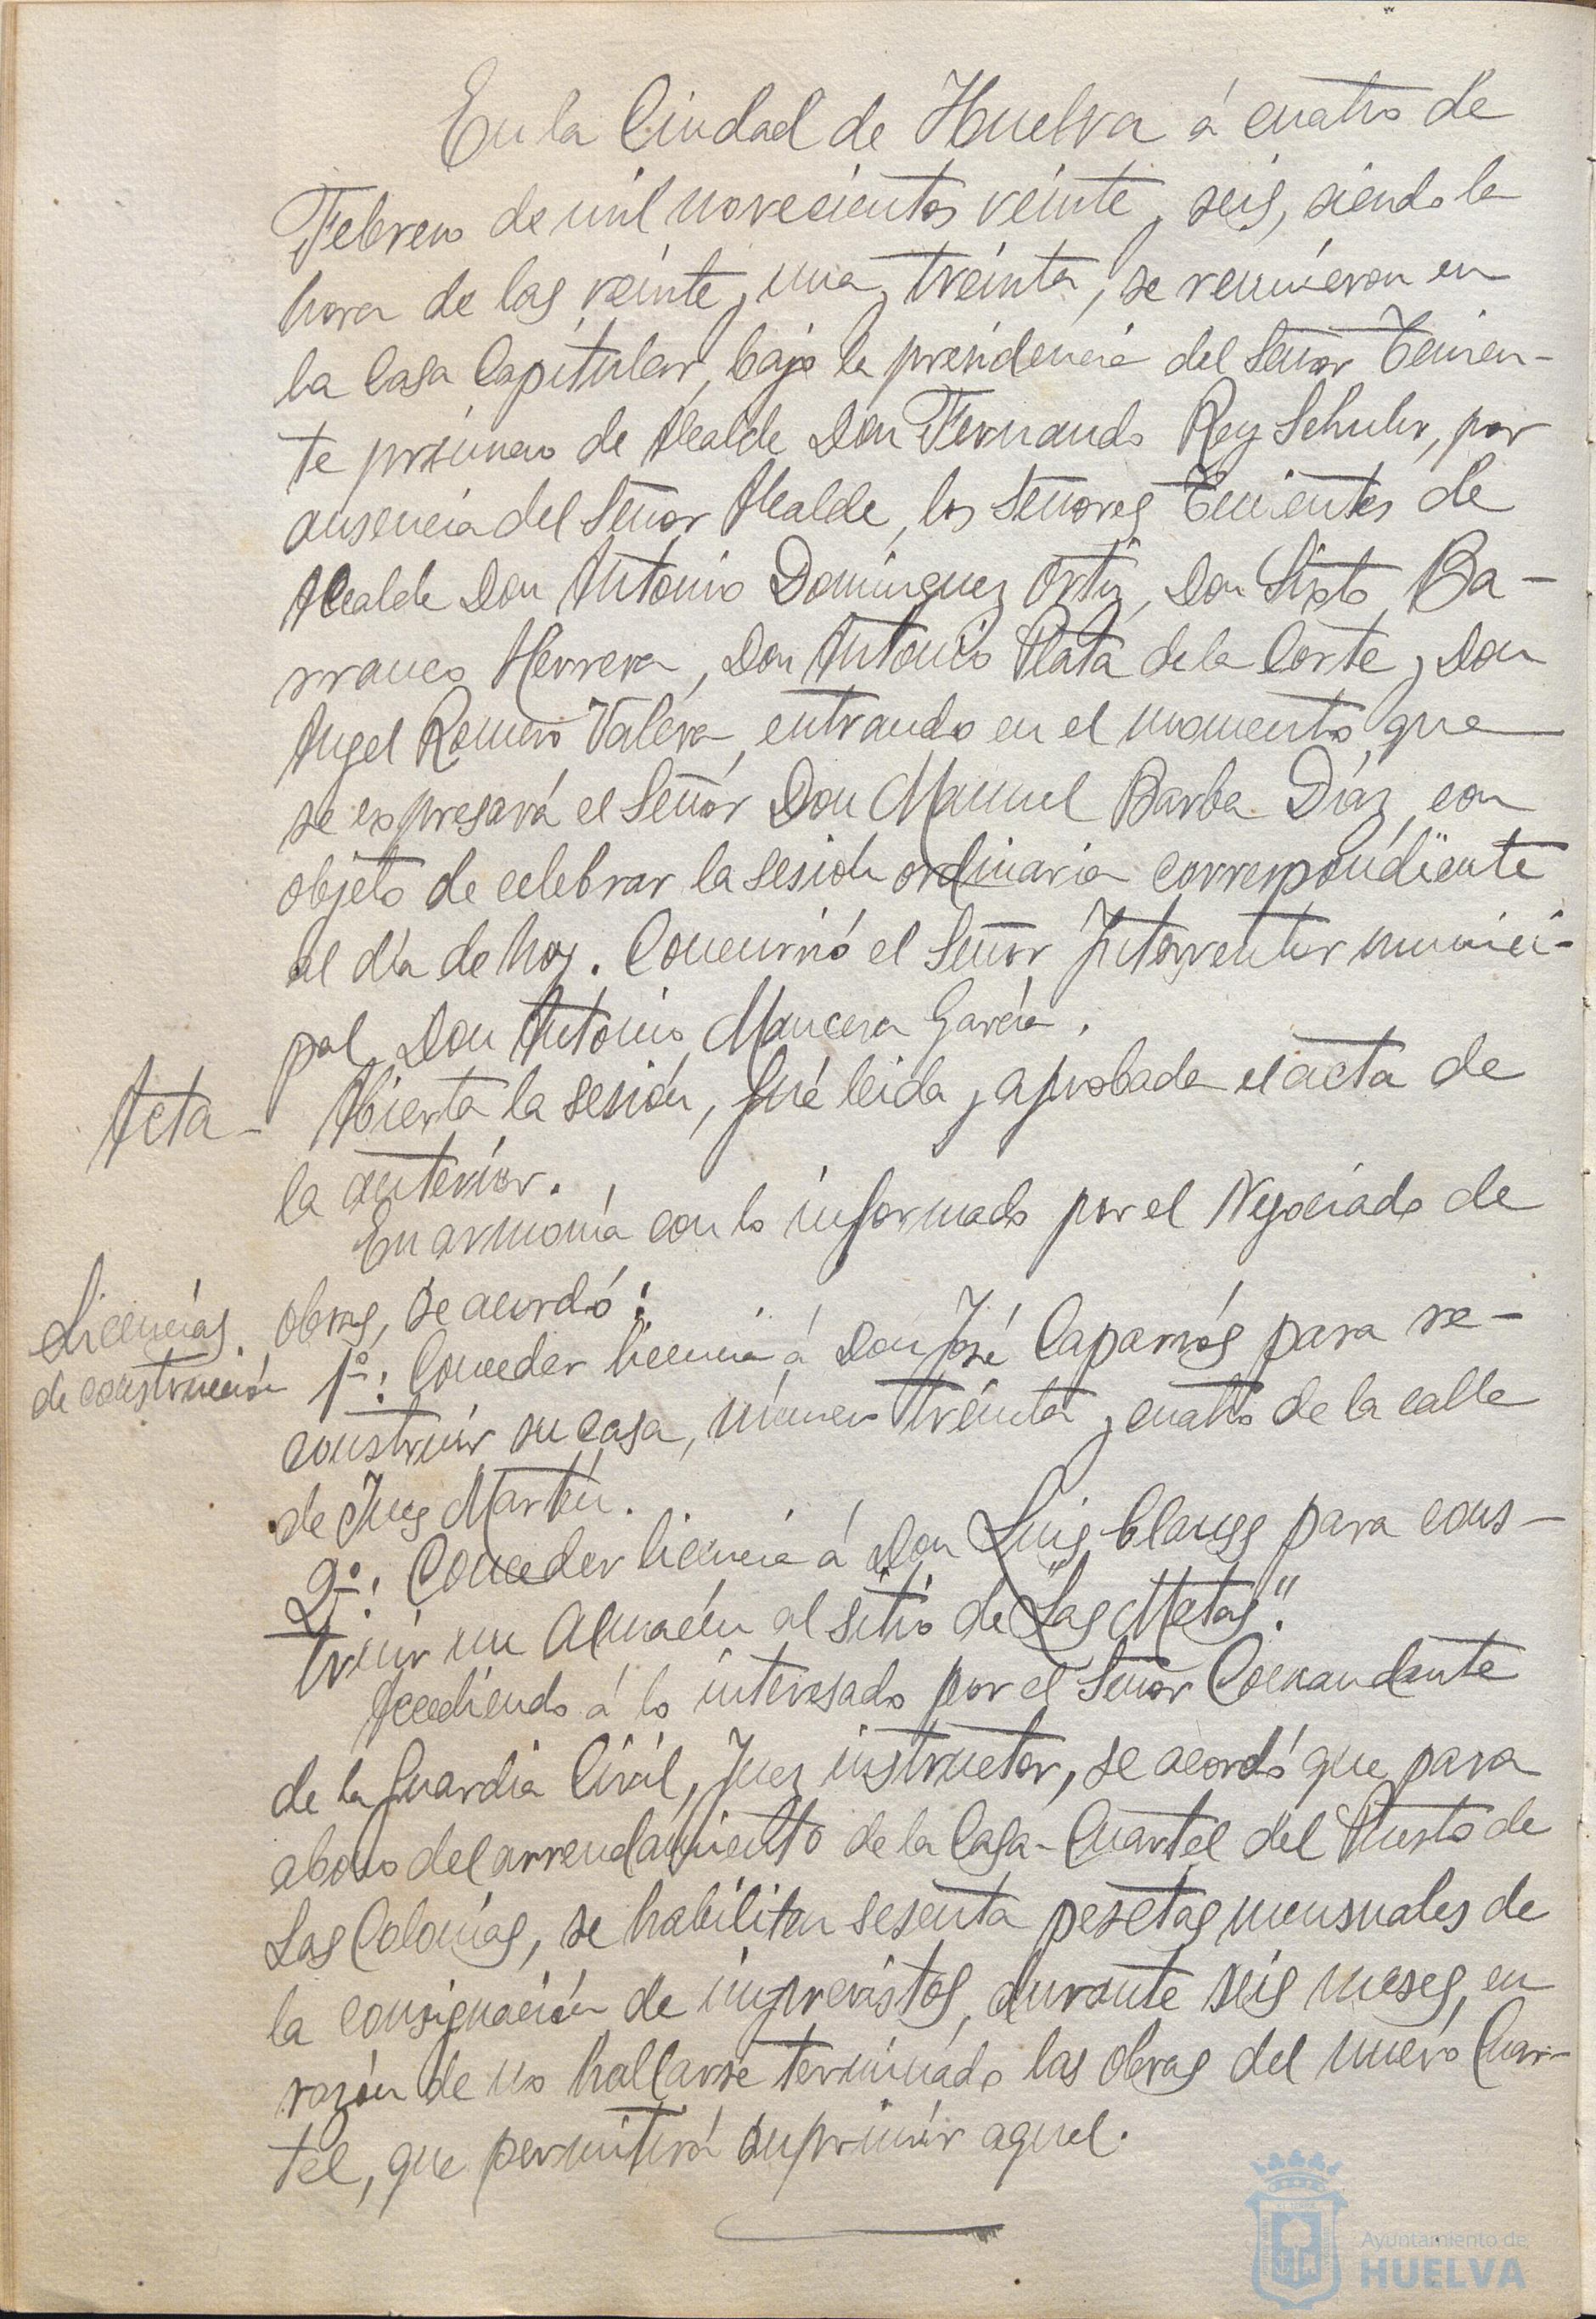 En la Ciudad de Huelva á cuatro de
Febrero de mil novecientos veinte y seis, siendo la
hora de las veinte y una y treinta, se reunieron en
la Casa Capitular, bajo la presidencia del Señor Tenien-
te primero de Alcalde Don Fernando Rey Schuler, por
ausencia del Señor Alcalde, los Señores Tenientes de
Alcalde Don Antonio Dominguez Ortiz, Don Sixto Ba-
rranco Herrera, Don Antonio Plata de la Corte y Don
Angel Romero Valera, entrando en el momento que
se expresará el Señor Don Manuel Barba Díaz, con
objeto de celebrar la sesión ordinaria correspondiente
al día de hoy. Concurrió el Señor Interventor munici-
pal, Don Antonio Mancera García.
Acta- Abierta la sesión, fué leida y aprobada el acta de
la anterior.
En armonía con lo informado por el Negociado de
obras, se acordó:
Licencias
de construcción
1º: Conceder licencia á Don José Caparrós para re-
construir su casa, número treinta y cuatro de la calle
de Ines Martín.
2º: Conceder licencia á Don Luis Clauss para cons-
truir un Almacén al sitio de "Las Metas".
Accediendo á lo interesado por el Señor Comandante
de la Guardia Civil, Juez instructor, se acordó que para
abono del arrendamiento de la Casa-Cuartel del Puesto de
Las Colonias, se habiliten sesenta pesetas mensuales de
la consignación de imprevistos, durante seis meses, en
razón de no hallarse terminado las obras del nuevo Cuar-
tel, que permitirá suprimir aquel.
Ayuntamiento de
HUELVA